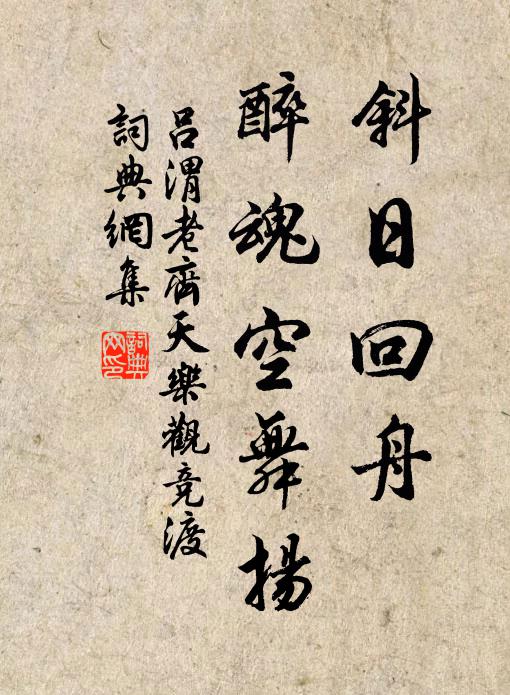 斜日回舟
醉魂空舞揚
呂渭老齊天樂觀竞渡
詞典網集
詞典網印